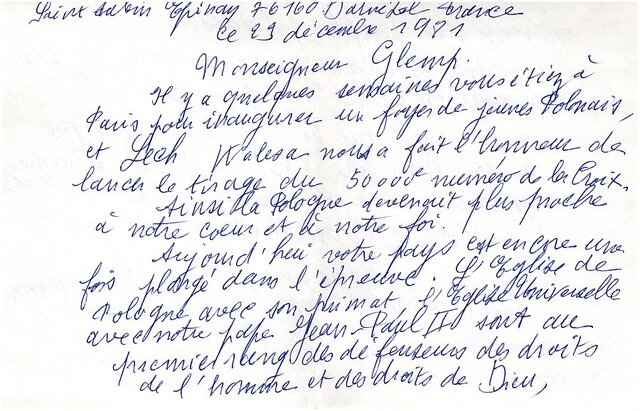 Saint Aubin Epinay 76160 Darnétal France
ce 23 décembre 1981
Monseigneur Glemp.
Il y a quelques semaines vous étiez à
Paris pour inaugurer un foyer de jeunes Polonais,
et Lech Walesa nous a fait l'honneur de
lancer le tirage du 50 000e numéro de la Croix.
Ainsi la Pologne devenait plus proche
à notre coeur et à notre foi.
Aujourd'hui votre pays est encore une
fois plongé dans l'épreuve. L'Eglise de
Pologne avec son primat, l'Eglise Universelle
avec notre pape Jean-Paul II sont au
premier rang des défenseurs des droits
de l'homme et des droits de Dieu,